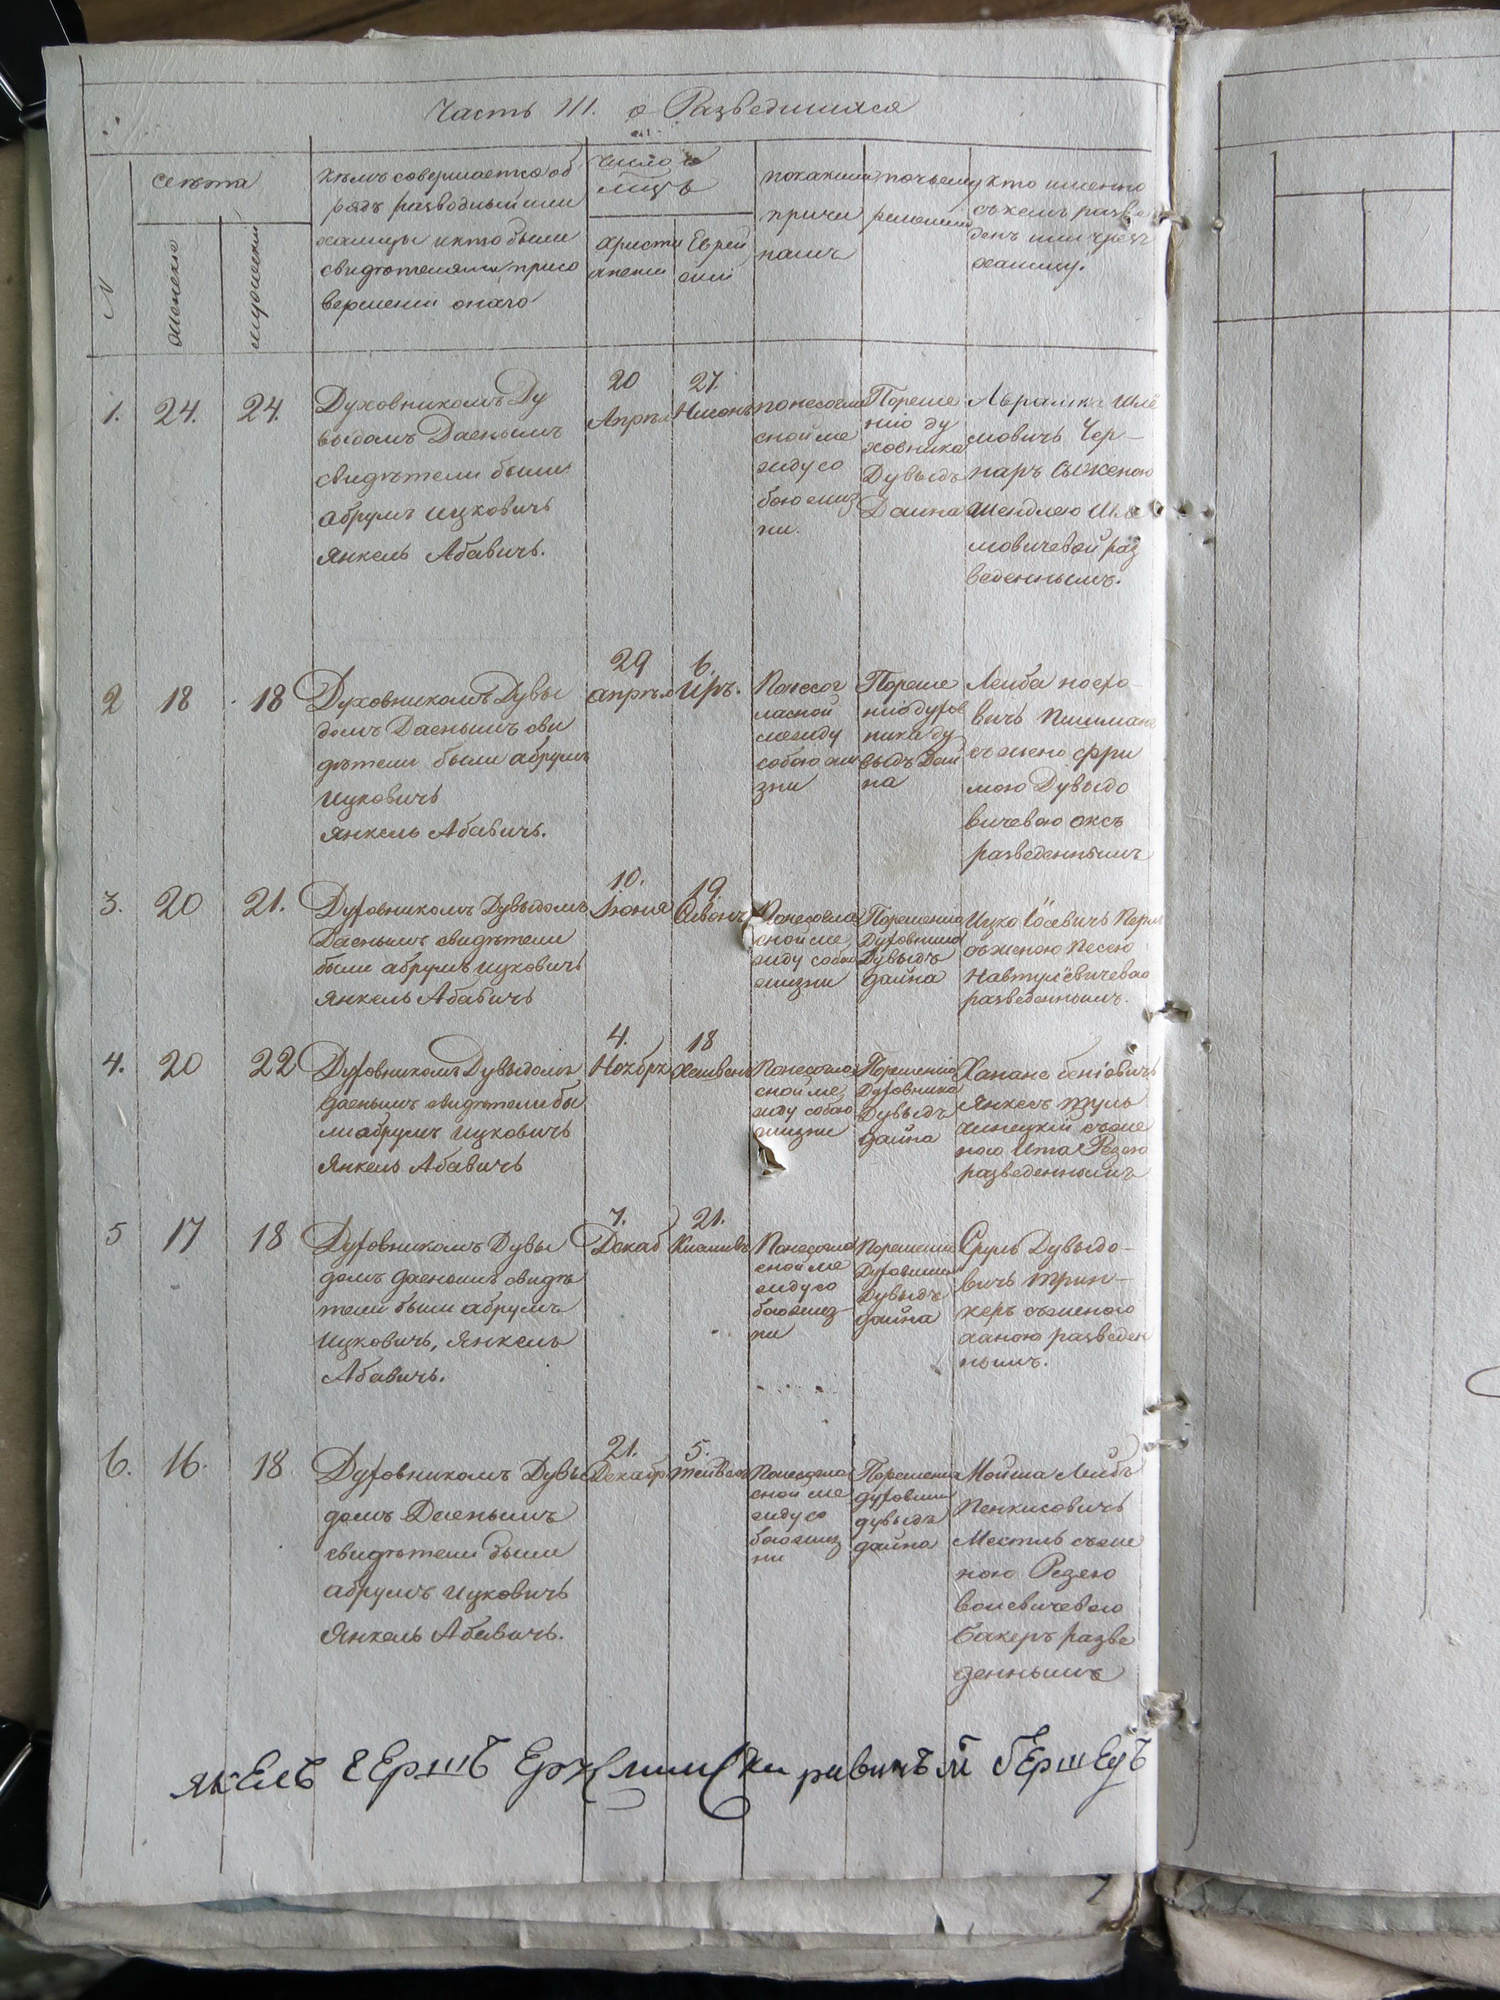 Часть III. о Разведшихся
N
сѣлѣта
женские
мужеский
кѣмъ совершается об
рядъ разводный или
халицы и кто были
свидѣтелями при со
вершении онаго
число
християнский
Еврейский
по каким
причи
намъ
по чьему
решению
кто именно
съ кемъ разве
денъ или чрезъ
халицу.
1.
24.
24.
Духовникомъ Ду
выдомъ Даенымъ
свидѣтели были
абрумъ ицковичъ
янкель Абавичъ.
20
Апрѣл
27.
Нисонъ
понесогла
сной ме
жду со
бою жиз
ни.
По реше
нию ду
ховника
Дувыдъ
Даина
Аврамка Шлё
мовичъ Чер–
наръ съ женою
Шендлею Шле
мовичевой раз
веденнымъ.
2
18
18
Духовникомъ Дувы
домъ Даенымъ сви
дѣтели были абрумъ
ицковичъ
янкель Абавичъ.
29
апрѣл
6.
Иръ.
Понесог
ласной
между
собою жи
зни
По реше
нию духов
ника Ду
выдъ Дай
на
Лейба
вичъ
съ жено фри
мою Дувыдо
вичевою оксъ
разведеннымъ
3.
20
21.
Духовникомъ Дувыдомъ
Даенымъ свидѣтели
были абрумъ ицковичъ
янкель Абавичъ
10.
Июня
19
Сивонъ
Понесогла
сной ме
жду собою
жизни
По решению
Духовника
Дувыдъ
дайна
Ицко Іосевичъ
съ женою Песею
Навтулевичевою
разведеннымъ.
4.
20
22
Духовникомъ Дувыдомъ
даенымъ свидѣтели бы
ли абрумъ ицковичъ
янкель Абавичъ
4.
Ноября
18
Хешвенъ
Понесогла
сной ме
жду собою
жизни
По решению
Духовника
Дувыдъ
дайна
Хапана беніовичъ
Янкель туль
чинецкій съ же
ною Ита Резею
разведеннымъ
5
17
18
Духовникомъ Дувы
домъ даенымъ свидѣ
тели были абрумъ
ицковичъ, янкель
Абавичъ.
7.
Декаб
21.
Кисливъ
Понесогла
сной ме
жду со
бою жиз–
ни
По решению
Духовника
Дувыдъ
дайна
Сруль Дувыдо–
вичъ трин–
керъ съ женою
ханою разведен
нымъ.
6.
16.
18
Духовникомъ Дувы
домъ Даенымъ
свидѣтели были
абрумъ ицковичъ
Янкель Абавичъ.
21.
Декабр
5.
тейвесъ
Понесогла
сной ме
жду со
бою жиз
ни
По решению
духовника
дувыдъ
дайна
Мойша Лейбъ
Пенкисовичъ
съ же
ною Резею
волевичевою
бакеръ разве
деннымъ
янкелъ гершъ равинъ бершедъ